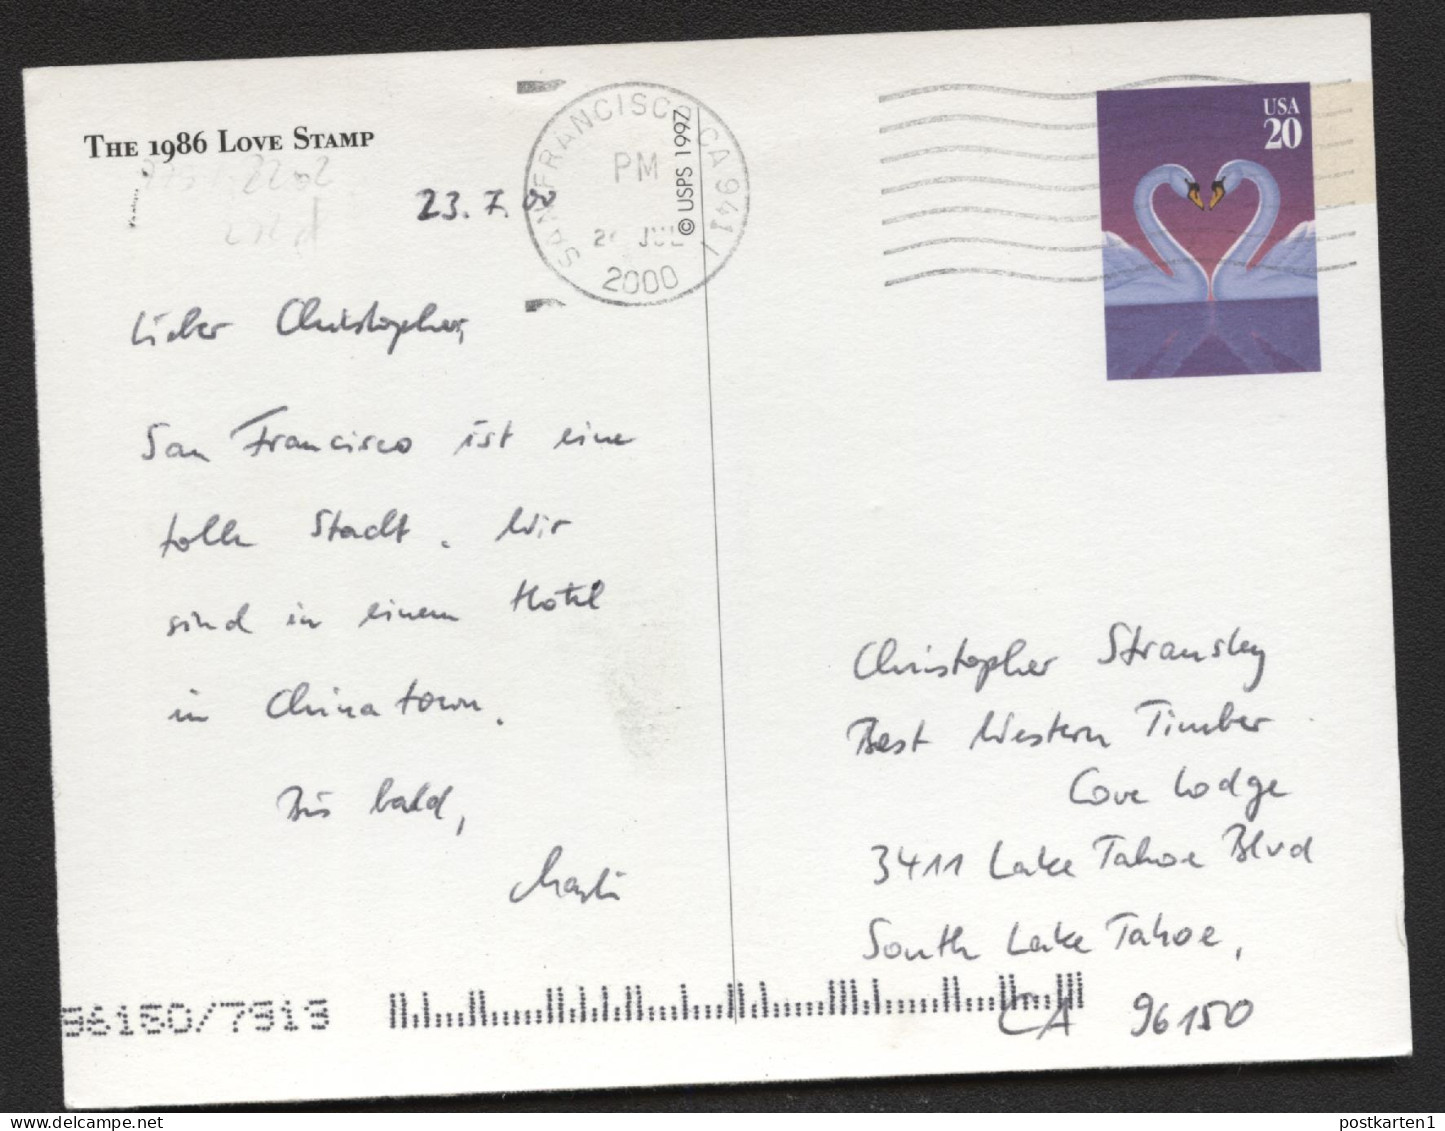 THE 1986 LOVE STAMP
23.7.00
SAN FRANCISCO CA 941
PM
JUL
2000
© USPS 1997
USA
20
Lieber Christopher,
San Francisco ist eine
tolle Stadt. Wir
sind in einem Hotel
in Chinatown.
Bis bald,
Christopher Stransky
Best Western Timber
Cove Lodge
3411 Lake Tahoe Blvd
South Lake Tahoe,
CA 96150
96150/7919
postkarten1